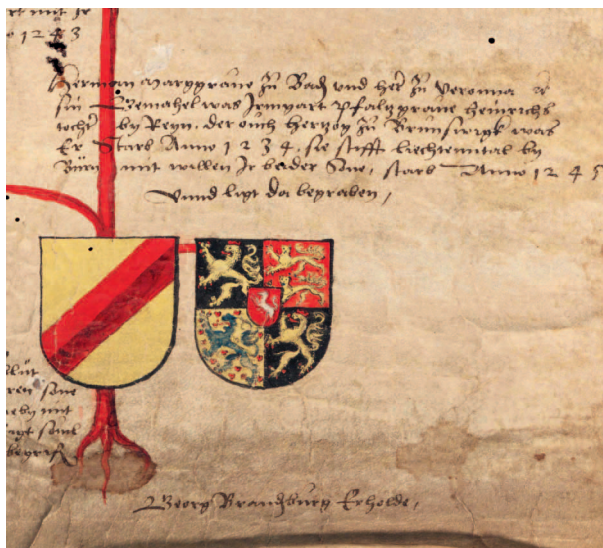 1243
Herman Marggraue zů Bad vnd her zů Veronna
sin Gemahel was Irmgart Pfaltzgraue Heinrichs
tochter by Reyn, der ouch Hertzog zů Brunswigk was
Er Starb Anno 1234. sie stifft Liechtental by
Bürn mit willen Ir beider Söne, starb Anno 124
Vnnd ligt da begraben,
ren söne
Georg Brandburg Erholde,